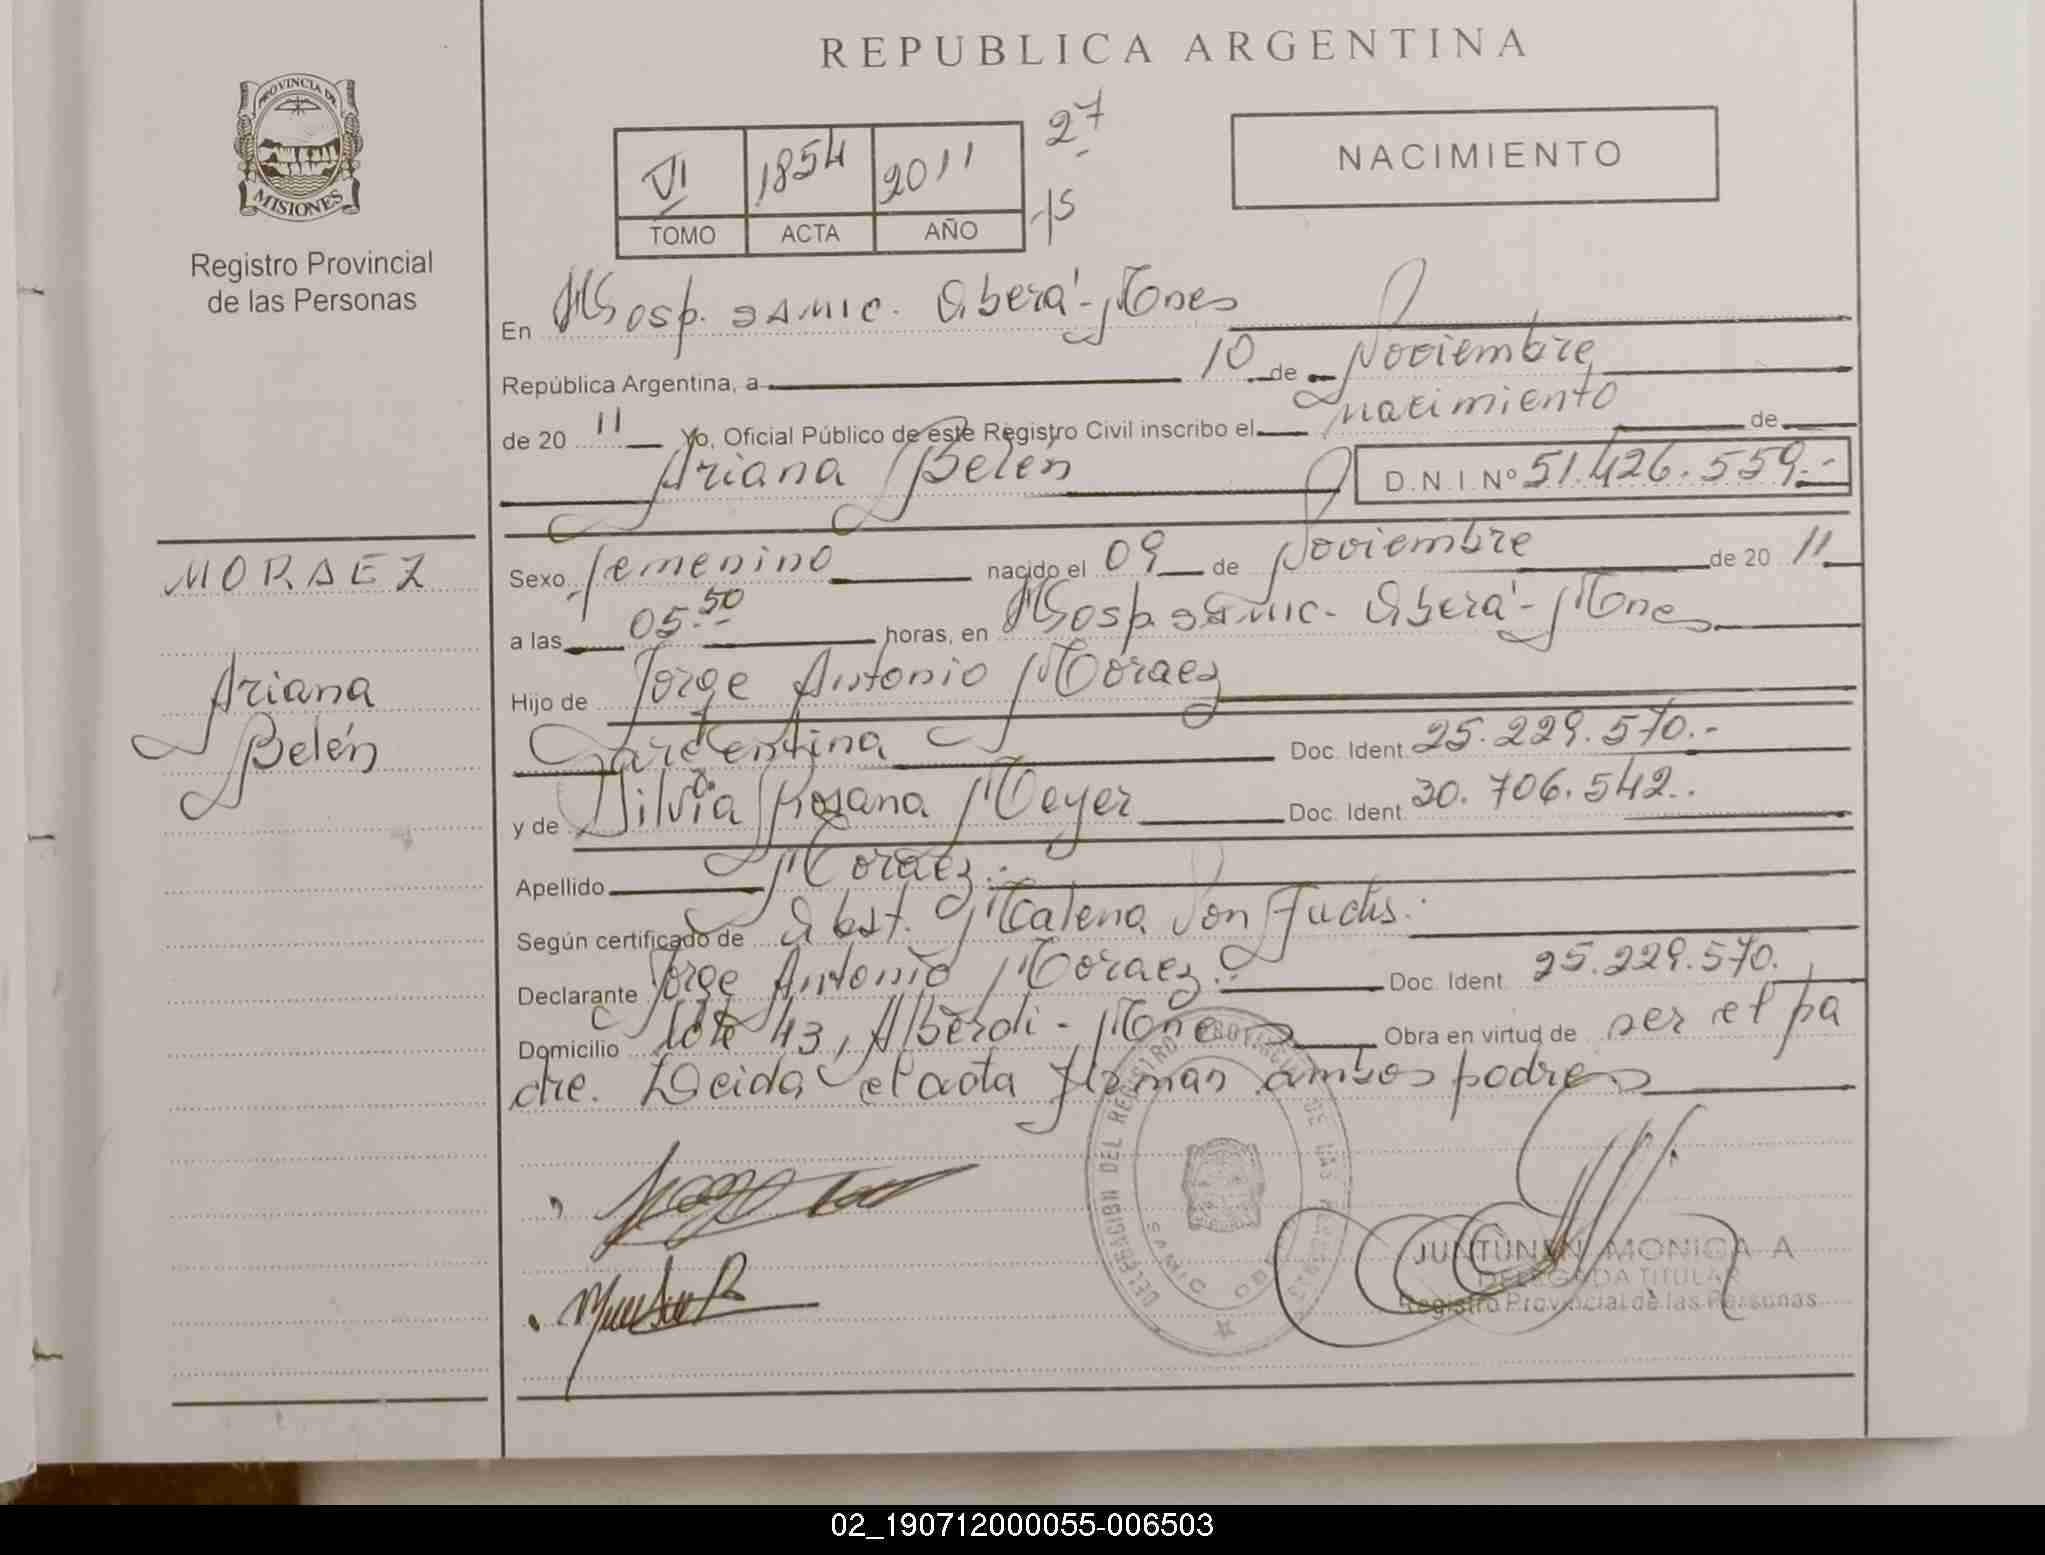 REPUBLICA ARGENTINA
PROVINCIA DE
MISIONES
Registro Provincial
de las Personas
VI 1854 2011
TOMO ACTA AÑO
27
15
NACIMIENTO
En Hosp. SAMIC. Oberá-Mnes
República Argentina, a 10 de Noviembre
de 20 11 Yo, Oficial Público de este Registro Civil inscribo el nacimiento de
Ariana Belén D.N.I. Nº 51.426.559.-
MORAEZ
Ariana
Belén
Sexo femenino nacido el 09 de Noviembre de 20 11
a las 05.50 horas, en Hosp. SAMIC. Oberá-Mnes
Hijo de Jorge Antonio Moraez
Argentina Doc. Ident. 25.229.570.-
y de Silvia Rosana Meyer Doc. Ident. 30.706.542..
Apellido Moraez.-
Según certificado de Obst. Malena Von Fuchs.
Declarante Jorge Antonio Moraez.- Doc. Ident. 25.229.570.
Domicilio lote 43, Alberdi-Mnes Obra en virtud de ser el pa
dre. Leida el acta firman ambos padres
DELEGACION DEL REGISTRO PROVINCIAL DE LAS PERSONAS
JUNTUNEN MONICA A
DELEGADA TITULAR
Registro Provincial de las Personas
02_190712000055-006503